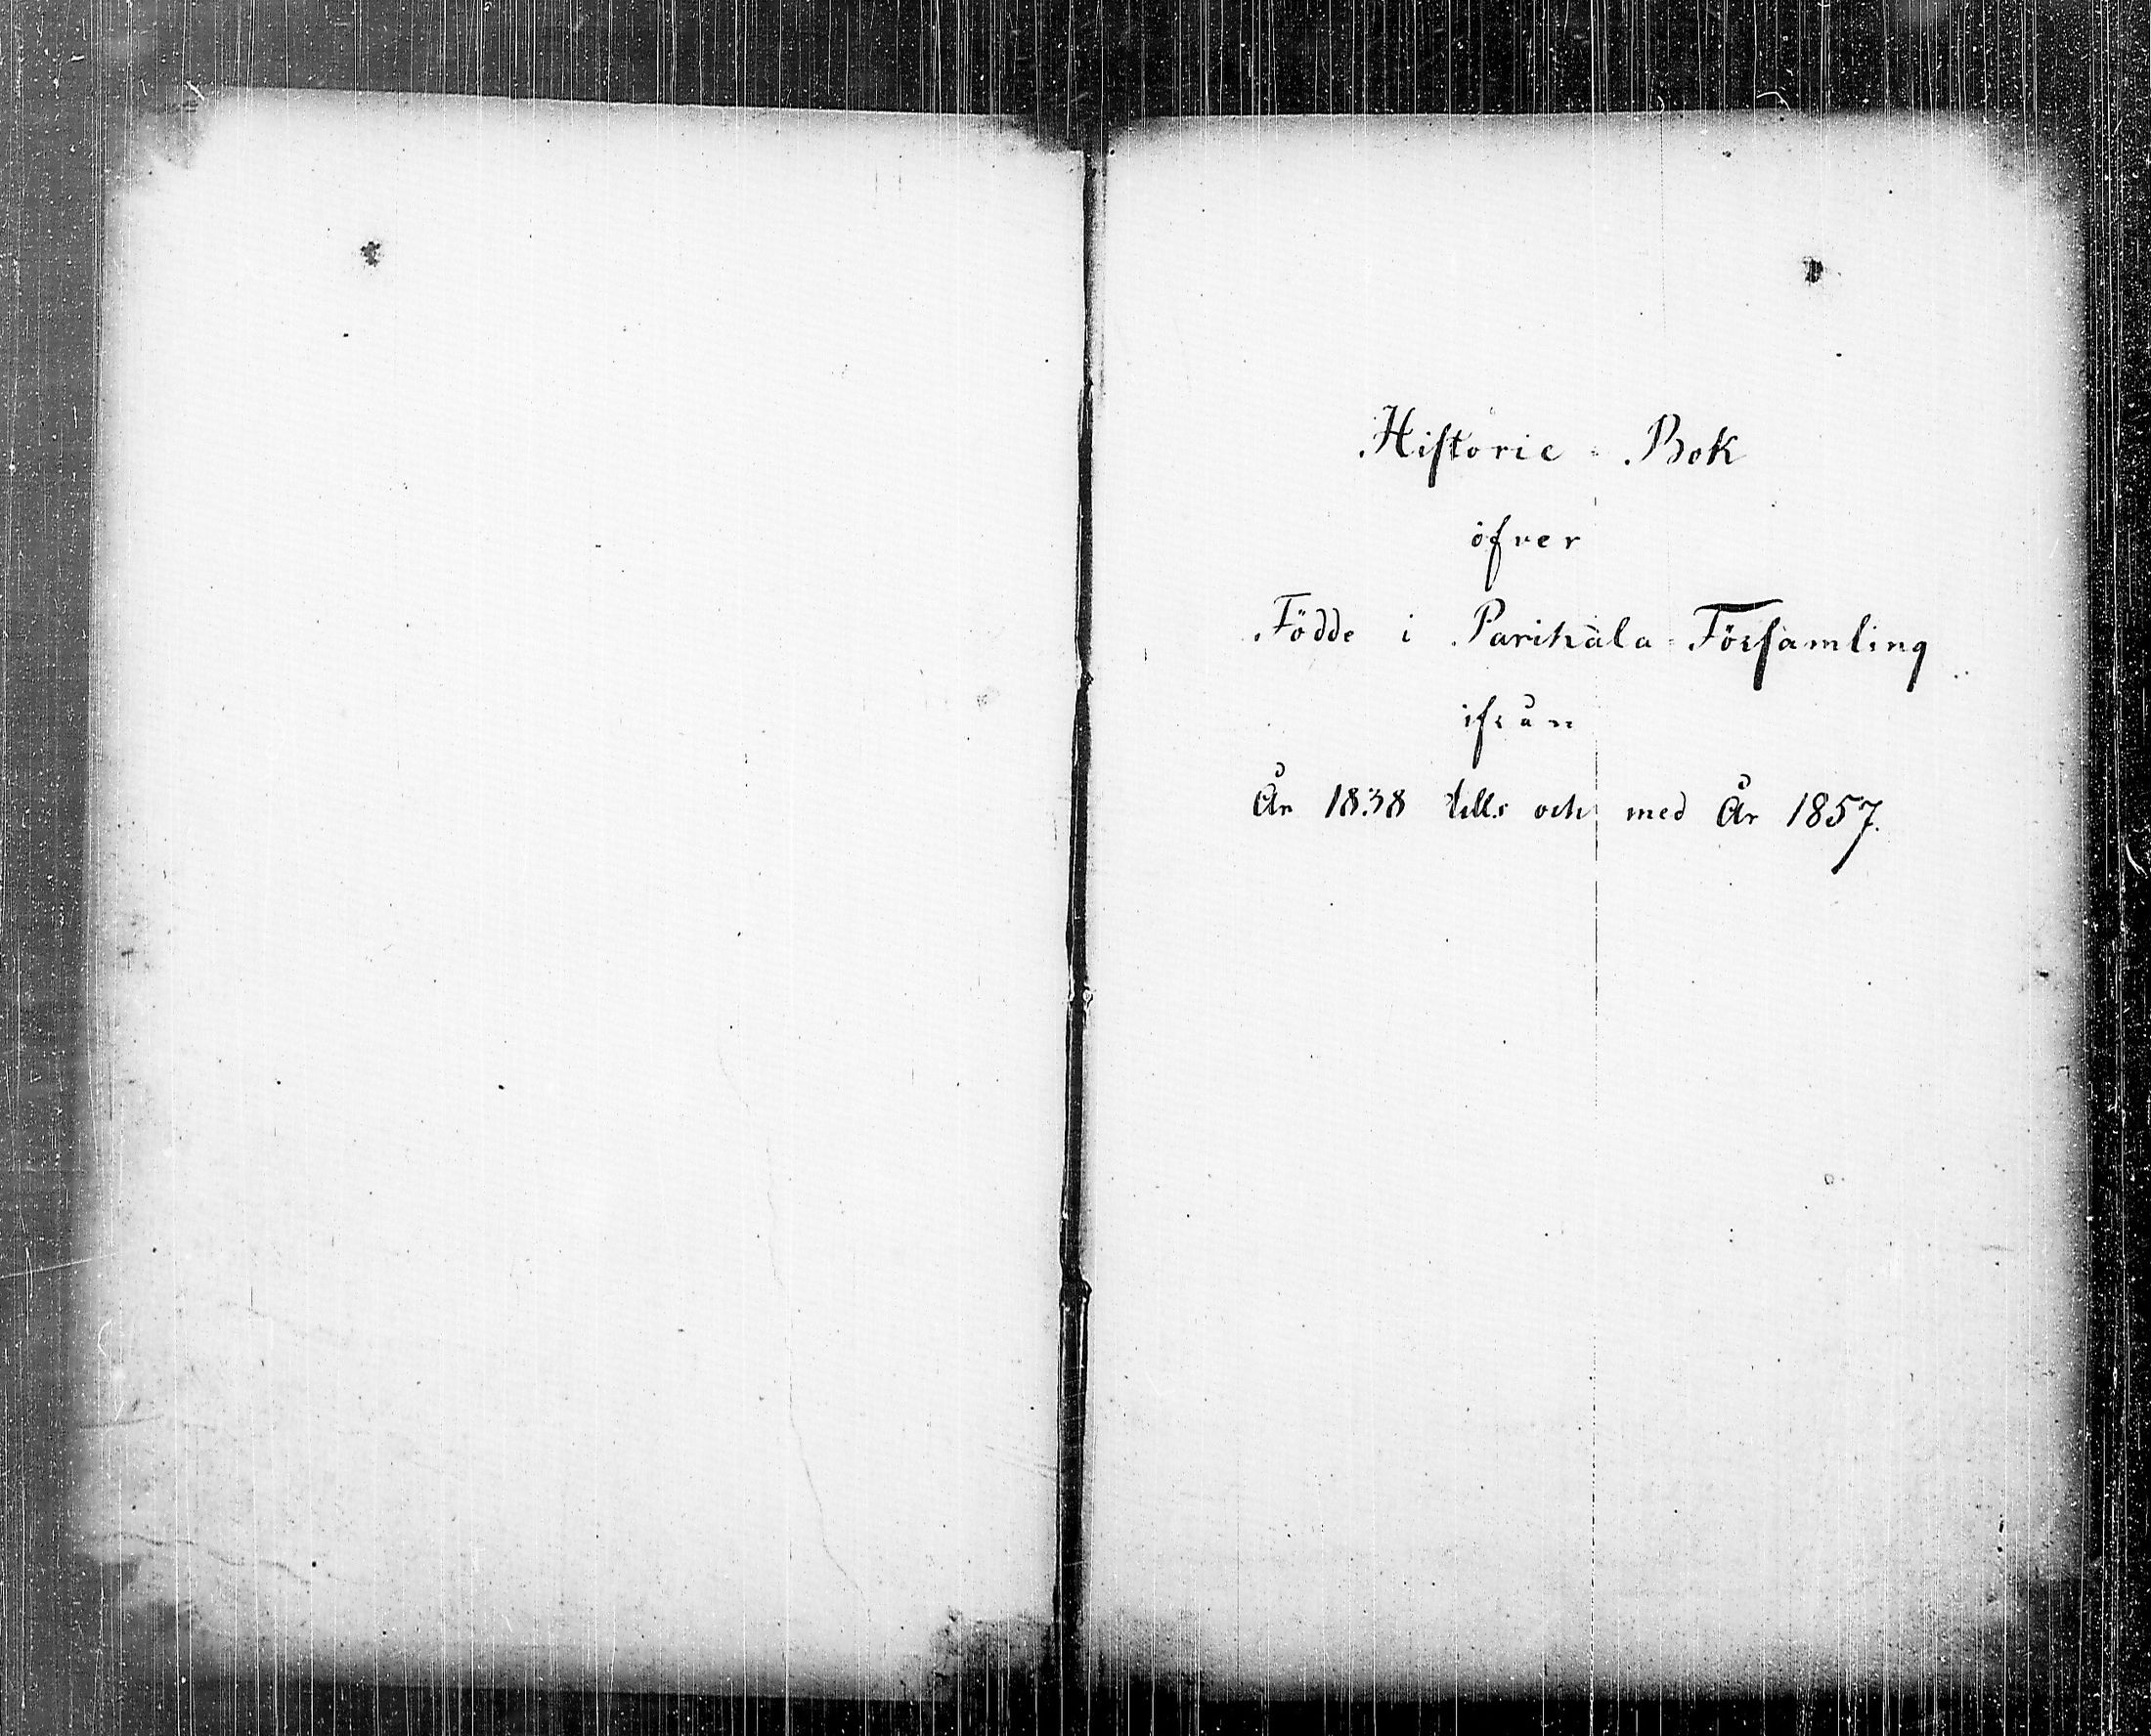 Historie - Bok
öfver
Födde i Parikala Församling
ifrån
År 1838 tills och med År 1857.